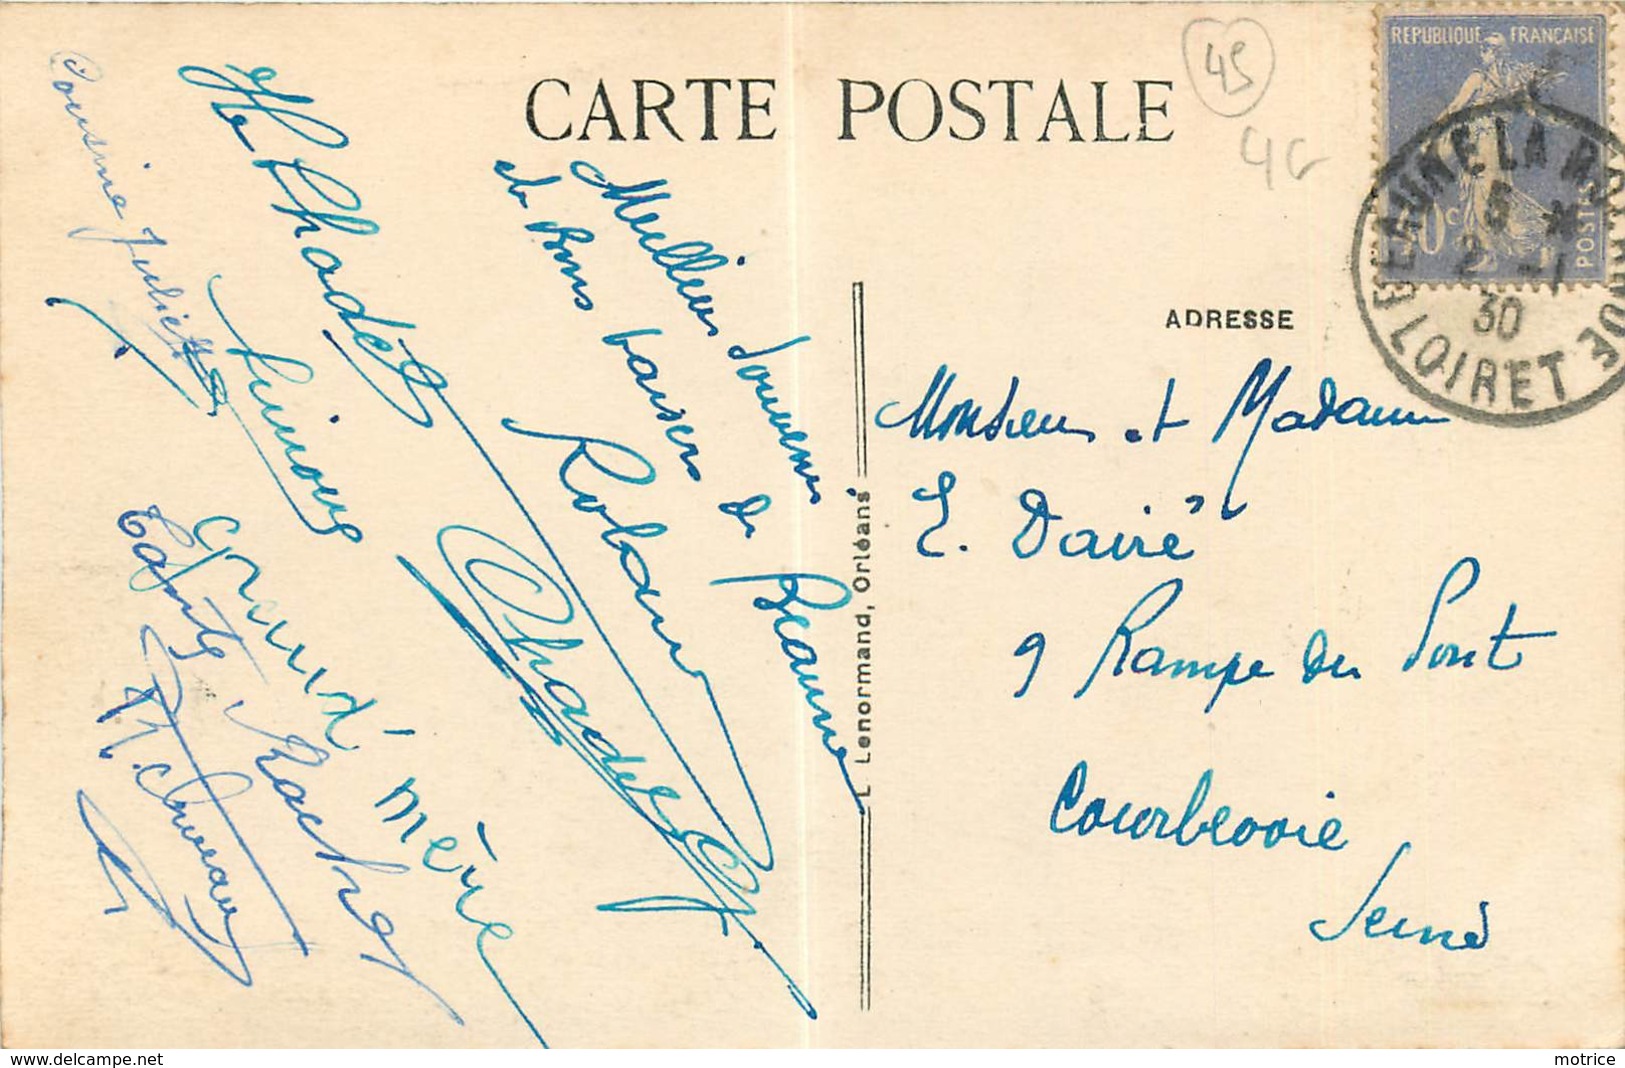 CARTE POSTALE
45
REPUBLIQUE FRANÇAISE
50c
POSTES
BEAUNE LA ROLANDE
5
2 - 1
30
LOIRET
ADRESSE
Monsieur et Madame
E. Dairé
9 Rampe du Pont
Courbevoie
Seine
L. Lenormand, Orléans
Meilleurs Souvenirs
et Bons baisers de Beaune
Roland
Simone
Cousine Juliette
Grand' mère
Tante Rachel
www.delcampe.net
motrice